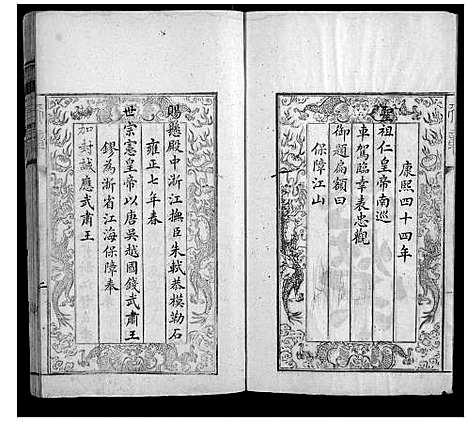 康熙四十四年
聖祖仁皇帝南巡
車駕臨幸表忠觀
御題扁額曰
保障江山
賜懸殿中浙江撫臣朱軾恭模勒石
雍正七年春
世宗憲皇帝以唐吳越國錢武肅王
鏐為浙省江海保障奉
加封誠應武肅王